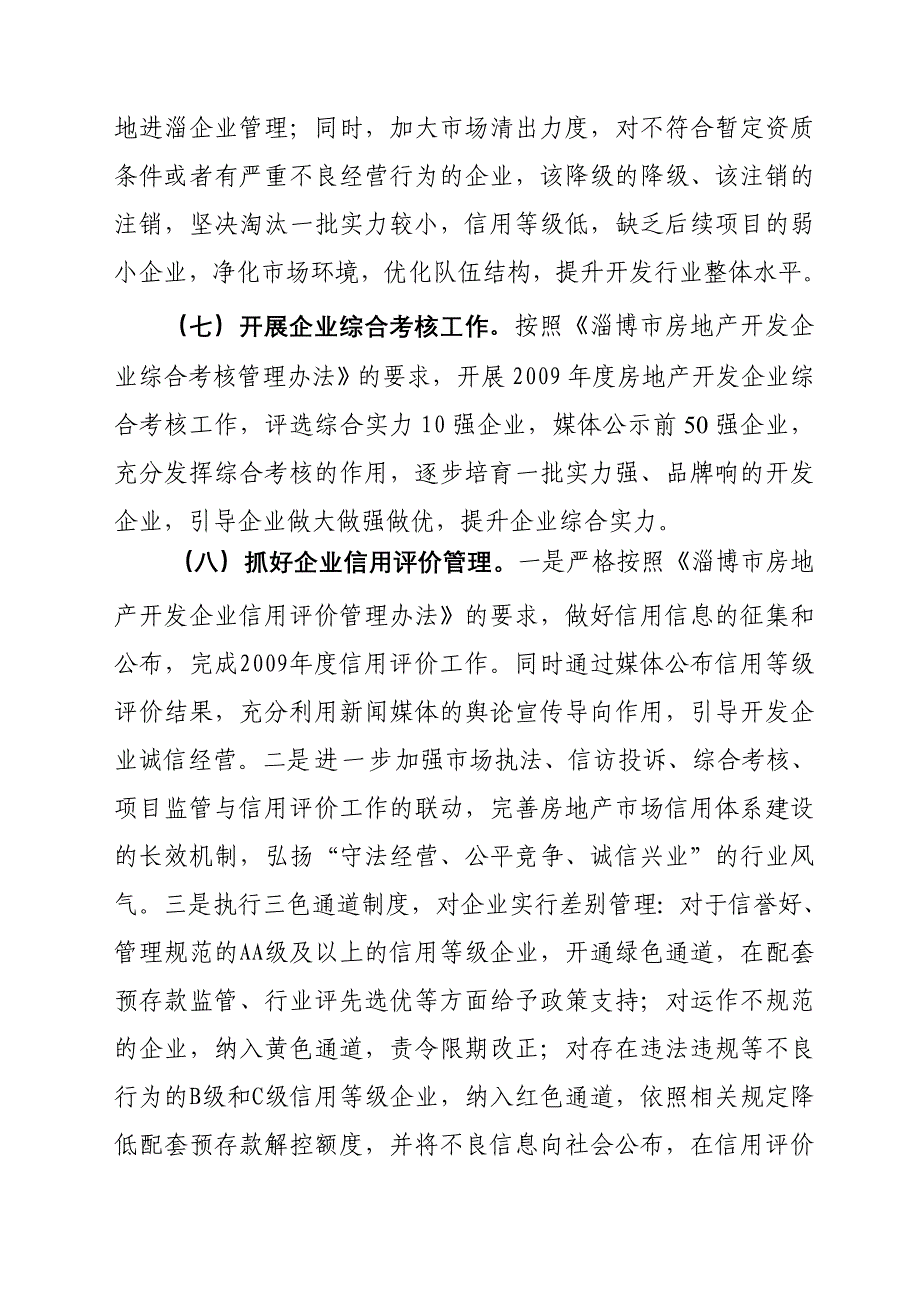 地进淄企业管理；同时，加大市场清出力度，对不符合暂定资质
条件或者有严重不良经营行为的企业，该降级的降级、该注销的
注销，坚决淘汰一批实力较小，信用等级低，缺乏后续项目的弱
小企业，净化市场环境，优化队伍结构，提升开发行业整体水平。
（七）开展企业综合考核工作。按照《淄博市房地产开发企
业综合考核管理办法》的要求，开展 2009 年度房地产开发企业综
合考核工作，评选综合实力 10 强企业，媒体公示前 50 强企业，
充分发挥综合考核的作用，逐步培育一批实力强、品牌响的开发
企业，引导企业做大做强做优，提升企业综合实力。
（八）抓好企业信用评价管理。一是严格按照《淄博市房地
产开发企业信用评价管理办法》的要求，做好信用信息的征集和
公布，完成2009年度信用评价工作。同时通过媒体公布信用等级
评价结果，充分利用新闻媒体的舆论宣传导向作用，引导开发企
业诚信经营。二是进一步加强市场执法、信访投诉、综合考核、
项目监管与信用评价工作的联动，完善房地产市场信用体系建设
的长效机制，弘扬“守法经营、公平竞争、诚信兴业”的行业风
气。三是执行三色通道制度，对企业实行差别管理：对于信誉好、
管理规范的AA级及以上的信用等级企业，开通绿色通道，在配套
预存款监管、行业评先选优等方面给予政策支持；对运作不规范
的企业，纳入黄色通道，责令限期改正；对存在违法违规等不良
行为的B级和C级信用等级企业，纳入红色通道，依照相关规定降
低配套预存款解控额度，并将不良信息向社会公布，在信用评价